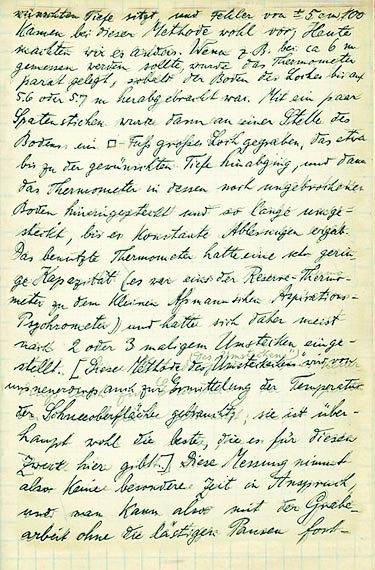 wünschten Tiefe sitzt und Fehler von ± 5 cm
kamen bei dieser Methode wohl vor. Heute
machten wir es anders. Wenn z. B. bei ca 6 m
gemessen werden sollte, wurde das Thermometer
parat gelegt, sobald der Boden des Loches bis auf
5.6 oder 5.7 m herabgebracht war. Mit ein paar
Spatenstichen wurde dann an einer Stelle des
Bodens ein □-Fuß großes Loch gegraben, das etwa
bis zu der gewünschten Tiefe hinabging, und dann
das Thermometer in dessen noch ungebrochenen
Boden hineingesteckt und so lange umge-
steckt, bis es konstante Ablesungen ergab.
Das benutzte Thermometer hatte eine sehr gerin-
ge Kapazität (es war eins der Reserve-Thermo-
meter zu dem kleinen Aßmannschen Aspirations-
Psychrometer) und hatte sich daher meist
nach 2 oder 3 maligem Umstecken einge-
stellt. [Diese Methode des "Umsteckens" wird von
uns neuerdings auch zur Ermittelung der Temperatur
der Schneeoberfläche gebraucht; sie ist über-
haupt wohl die beste, die es für diesen
Zweck hier gibt.] Diese Messung nimmt
also keine besondere Zeit in Anspruch,
und man kann also mit der Grabe-
arbeit ohne die lästigen Pausen fort-